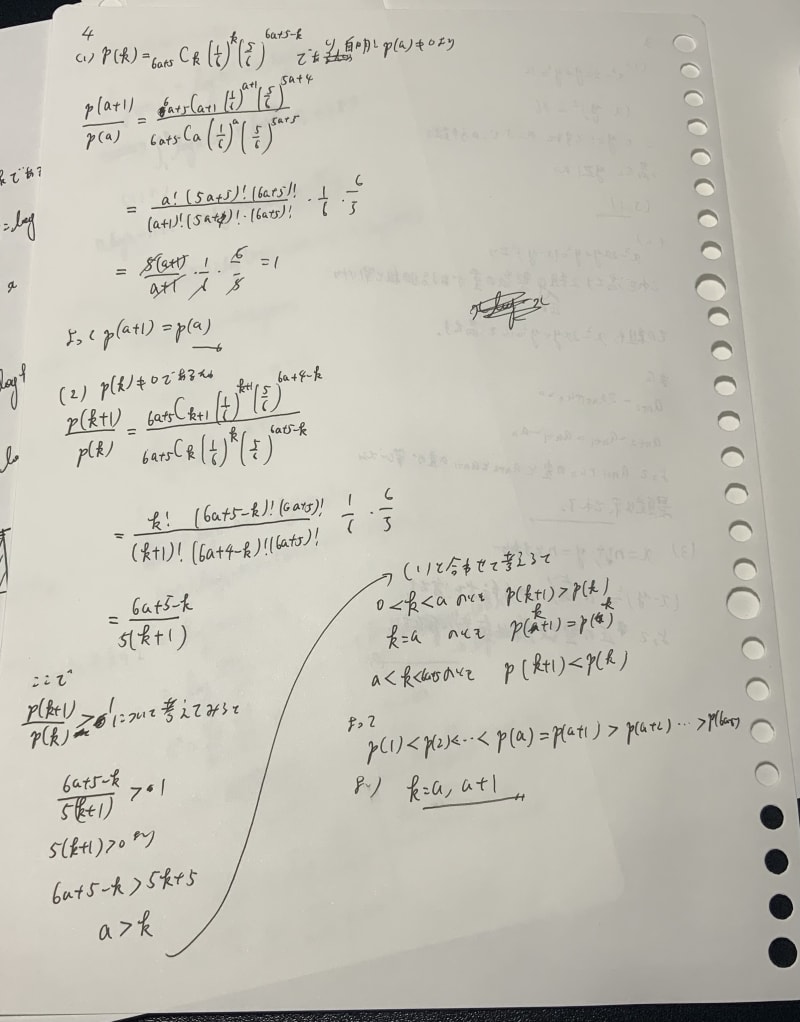 4
(1) p(k) = 6a+5Ck (1/6)^k (5/6)^(6a+5-k) で 自明に p(a)≠0より
p(a+1)/p(a) = 6a+5Ca+1 (1/6)^(a+1) (5/6)^(5a+4) / 6a+5Ca (1/6)^a (5/6)^(5a+5)
= a! (5a+5)! (6a+5)! / (a+1)! (5a+4)! · (6a+5)! · 1/6 · 6/5
= 5(a+1)/a+1 · 1/6 · 6/5 = 1
よって p(a+1) = p(a)
(2) p(k)≠0である
p(k+1)/p(k) = 6a+5Ck+1 (1/6)^(k+1) (5/6)^(6a+4-k) / 6a+5Ck (1/6)^k (5/6)^(6a+5-k)
= k! (6a+5-k)! (6a+5)! / (k+1)! (6a+4-k)! (6a+5)! 1/6 · 6/5
= 6a+5-k / 5(k+1)
ここで
p(k+1)/p(k) > 1について考えてみると
6a+5-k / 5(k+1) > 1
5(k+1)>0 より
6a+5-k > 5k+5
a > k
(1)と合わせて考えると
0<k<a のとき p(k+1)>p(k)
k=a のとき p(k+1)=p(k)
a<k<6a+5のとき p(k+1)<p(k)
よって
p(1)<p(2)<…<p(a)=p(a+1)>p(a+2)…>p(6a+5)
より k=a, a+1
= log
a
log
lo
(3)